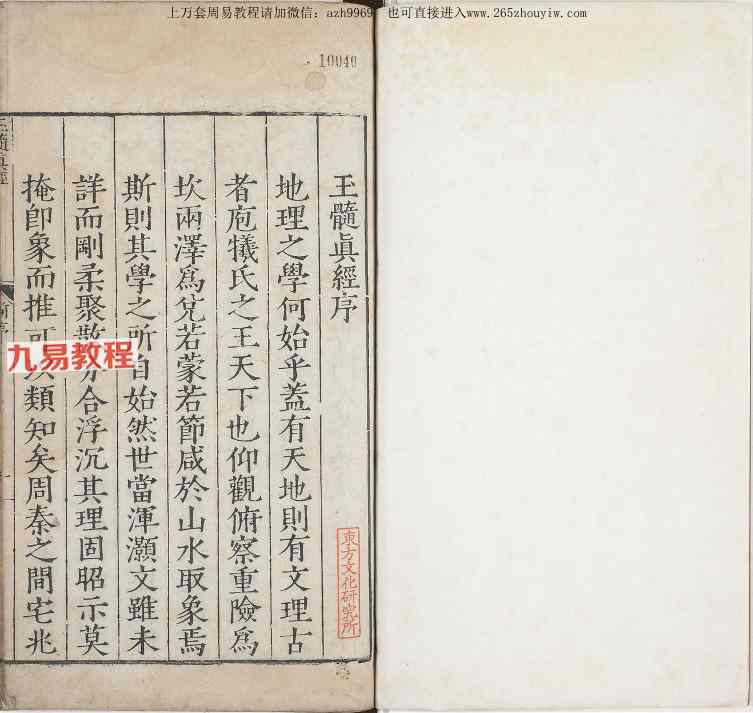 上万套周易教程请加微信：azh9969 也可直接进入www.265zhouyiw.com
10040
玉髓眞經序
地理之學何始乎蓋有天地則有文理古
者庖犧氏之王天下也仰觀俯察重險爲
坎兩澤爲兌若蒙若節咸於山水取象焉
斯則其學之所自始然世當渾灝文雖未
詳而剛柔聚散分合浮沉其理固昭示莫
掩卽象而推可以類知矣周秦之間宅兆
東方文化研究所
九易教程